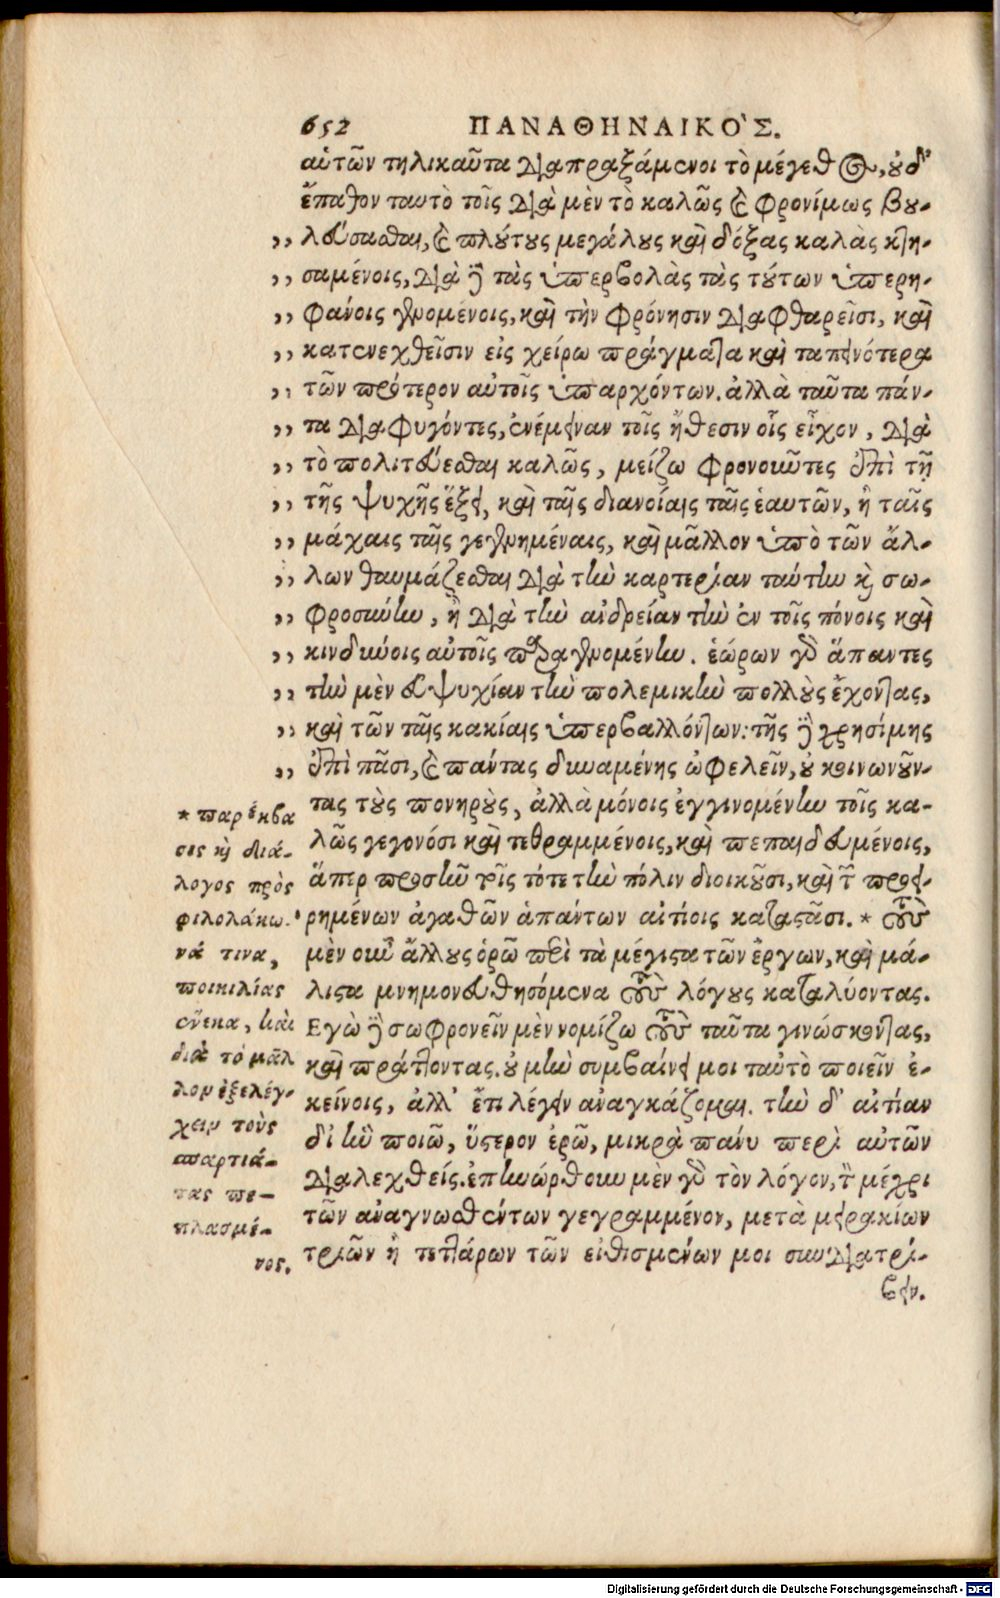 652 ΠΑΝΑΘΗΝΑΙΚΟ'Σ.
αὑτῶν τηλικαῦτα διαπραξάμενοι τὸ μέγεθος, οὐδ'
ἔπαθον ταυτὸ τοῖς διὰ μὲν τὸ καλῶς καὶ φρονίμως βου-
,, λεύσασθαι, καὶ πλούτους μεγάλους καὶ δόξας καλὰς κτη-
,, σαμένοις, διὰ δὲ τὰς ὑπερβολὰς τὰς τούτων ὑπερη-
,, φάνοις γενομένοις, καὶ τὴν φρόνησιν διαφθαρεῖσι, καὶ
,, κατενεχθεῖσιν εἰς χείρω πράγματα καὶ ταπεινότερα
,, τῶν πρότερον αὐτοῖς ὑπαρχόντων. ἀλλὰ ταῦτα πάν-
,, τα διαφυγόντες, ἐνέμειναν τοῖς ἤθεσιν οἷς εἶχον, διὰ
,, τὸ πολιτεύεσθαι καλῶς, μείζω φρονοῦντες ἐπὶ τῇ
,, τῆς ψυχῆς ἕξει, καὶ ταῖς διανοίαις ταῖς ἑαυτῶν, ἢ ταῖς
,, μάχαις ταῖς γεγενημέναις, καὶ μᾶλλον ὑπὸ τῶν ἄλ-
,, λων θαυμάζεσθαι διὰ τὴν καρτερίαν ταύτην καὶ σω-
,, φροσύνην, ἢ διὰ τὴν ἀνδρείαν τὴν ἐν τοῖς πόνοις καὶ
,, κινδύνοις αὐτοῖς παραγενομένην. ἑώρων γὰρ ἅπαντες
,, τὴν μὲν εὐψυχίαν τὴν πολεμικὴν πολλοὺς ἔχοντας,
,, καὶ τῶν ταῖς κακίαις ὑπερβαλλόντων: τῆς δὲ χρησίμης
,, ἐπὶ πᾶσι, καὶ πάντας δυναμένης ὠφελεῖν, οὐ κοινωνοῦν-
τας τοὺς πονηροὺς, ἀλλὰ μόνοις ἐγγινομένην τοῖς κα-
λῶς γεγονόσι καὶ τεθραμμένοις, καὶ πεπαιδευμένοις,
ἅπερ προσῆν τοῖς τότε τὴν πόλιν διοικοῦσι, καὶ τῶν προει-
ρημένων ἀγαθῶν ἁπάντων αἰτίοις καταστᾶσι. * τοὺς
μὲν οὖν ἄλλους ὁρῶ περὶ τὰ μέγιστα τῶν ἔργων, καὶ μά-
λιστα μνημονευθησόμενα τοὺς λόγους καταλύοντας.
Εγὼ δὲ σωφρονεῖν μὲν νομίζω τοὺς ταῦτα γινώσκοντας,
καὶ πράττοντας. οὐ μὴν συμβαίνει μοι ταὐτὸ ποιεῖν ἐ-
κείνοις, ἀλλ' ἔτι λέγειν ἀναγκάζομαι. τὴν δ' αἰτίαν
δι' ἣν ποιῶ, ὕστερον ἐρῶ, μικρὰ πάνυ περὶ αὐτῶν
διαλεχθείς. ἐπηνώρθουν μὲν γὰρ τὸν λόγον, τὸν μέχρι
τῶν ἀναγνωσθέντων γεγραμμένον, μετὰ μειρακίων
τριῶν ἢ τεττάρων τῶν εἰθισμένων μοι συνδιατρί-
βειν.
* παρέκβα
σις καὶ διά-
λογος πρὸς
φιλολάκω-
νά τινα,
ποικιλίας
ἕνεκα, καὶ
διὰ τὸ μᾶλ
λον ἐξελέγ-
χειν τοὺς
σπαρτιά-
τας πε-
πλασμέ-
νος.
Digitalisierung gefördert durch die Deutsche Forschungsgemeinschaft - DFG